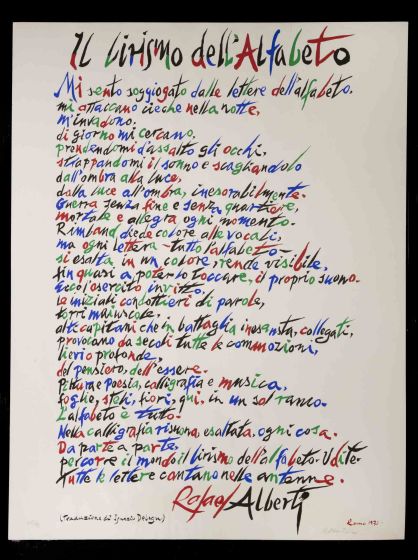 Il lirismo dell'Alfabeto
Mi sento soggiogato dalle lettere dell'alfabeto.
mi attaccano cieche nella notte,
m'invadono.
di giorno mi cercano,
prendendomi d'assalto gli occhi,
strappandomi il sonno e scagliandolo
dall'ombra alla luce,
dalla luce all'ombra, inesorabilmente.
Guerra senza fine e senza quartiere,
mortale e allegra ogni momento.
Rimbaud diede colore alle vocali,
ma ogni lettera - tutto l'alfabeto -
si esalta in un colore, rende visibile,
fin quasi a poterlo toccare, il proprio suono.
Ecco l'esercito invitto,
le iniziali condottieri di parole,
torri maiuscole,
alti capitani che in battaglia inesausta, collegati,
provocano da secoli tutte le commozioni,
lievi o profonde,
del pensiero, dell'essere.
Pittura e poesia, calligrafia e musica,
foglie, steli, fiori, qui, in un sol ramo.
L'alfabeto è tutto.
Nella calligrafia risuona, esaltata, ogni cosa.
Da parte a parte,
percorre il mondo il lirismo dell'alfabeto. Udite.
Tutte le lettere cantano nelle antenne.
Rafael Alberti
(Traduzione di Ignazio Delogu)
Roma 1972